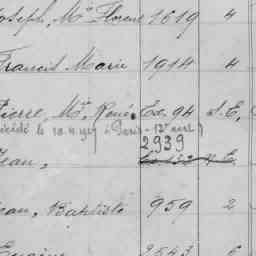 Joseph, Mie Florent 1619 4
Francis Marie 1914 4
Pierre, Mie René Ex. 94 S.E,
décédé le à Paris - 13e arrt
2939
Jean, Ex 132 S.E.
Jean, Baptiste 959 2
Eugène 2543 6